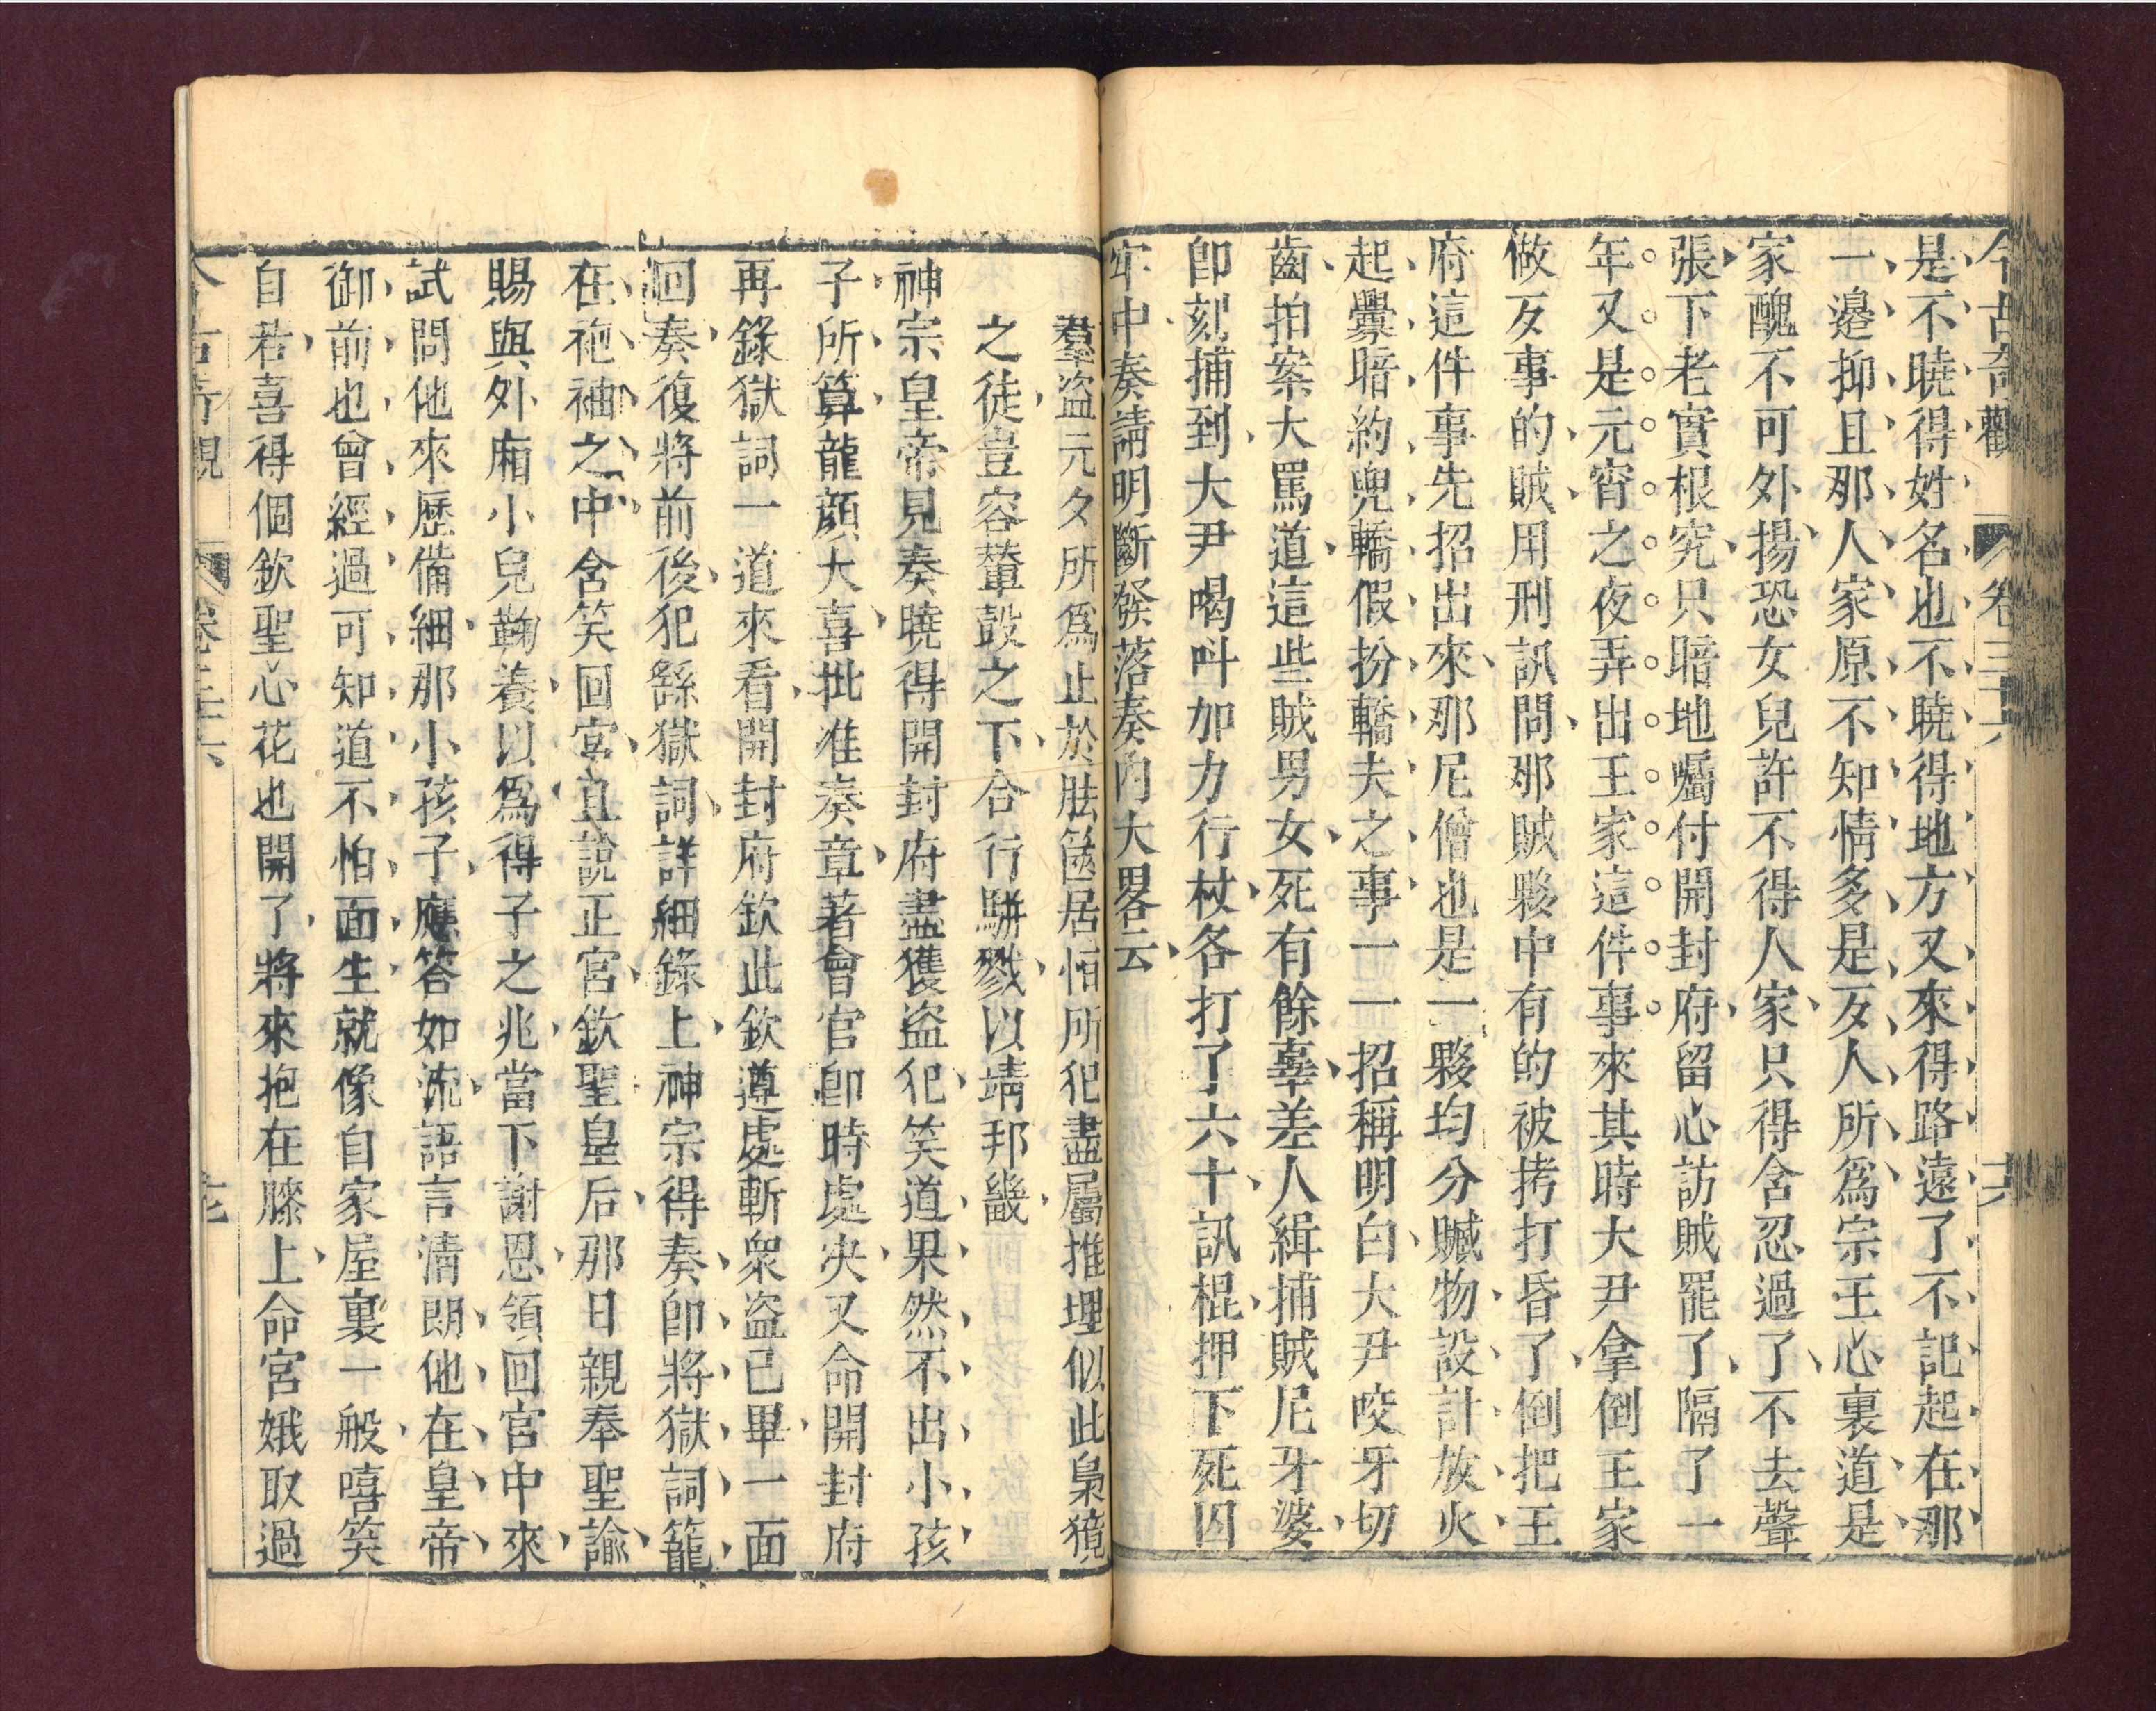 今古奇觀 卷三十六 十六
是不曉得姓名也不曉得地方又來得路遠了不記起在那
一邊抑且那人家原不知情多是歹人所爲宗王心裏道是
家醜不可外揚恐女兒許不得人家只得含忍過了不去聲
張下老實根究只暗地囑付開封府留心訪賊罷了隔了一
年又是元宵之夜弄出王家這件事來其時大尹拿倒王家
做歹事的賊用刑訊問那賊夥中有的被拷打昏了倒把王
府這件事先招出來那尼僧也是一夥均分贓物設計放火
起釁暗約兜轎假扮轎夫之事一一招稱明白大尹咬牙切
齒拍案大罵道這些賊男女死有餘辜差人緝捕賊尼牙婆
卽刻捕到大尹喝叫加力行杖各打了六十訊棍押下死囚
牢中奏請明斷發落奏內大畧云
羣盜元夕所爲止於胠篋居恒所犯盡屬推埋似此梟獍
之徒豈容輦轂之下合行駢戮以靖邦畿
神宗皇帝見奏曉得開封府盡獲盜犯笑道果然不出小孩
子所算龍顏大喜批准奏章著會官卽時處決又命開封府
再錄獄詞一道來看開封府欽此欽遵處斬衆盜已畢一面
回奏復將前後犯繇獄詞詳細錄上神宗得奏卽將獄詞籠
在袍袖之中含笑回宮且說正宮欽聖皇后那日親奉聖諭
賜與外廂小兒鞠養以爲得子之兆當下謝恩領回宮中來
試問他來歷備細那小孩子應答如流語言清朗他在皇帝
御前也曾經過可知道不怕面生就像自家屋裏一般嘻笑
自若喜得個欽聖心花也開了將來抱在膝上命宮娥取過
今古奇觀 卷三十六